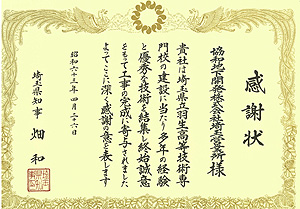 感謝状
協和地下開発株式会社埼玉営業所様
貴社は埼玉県立羽生高等技術専
門校の建設に当たり多年の経験
と優秀な技術を結集し終始誠意
をもって工事の完成に寄与されました
よってここに深く感謝の意を表します
昭和六十三年四月二十六日
埼玉県知事 畑和